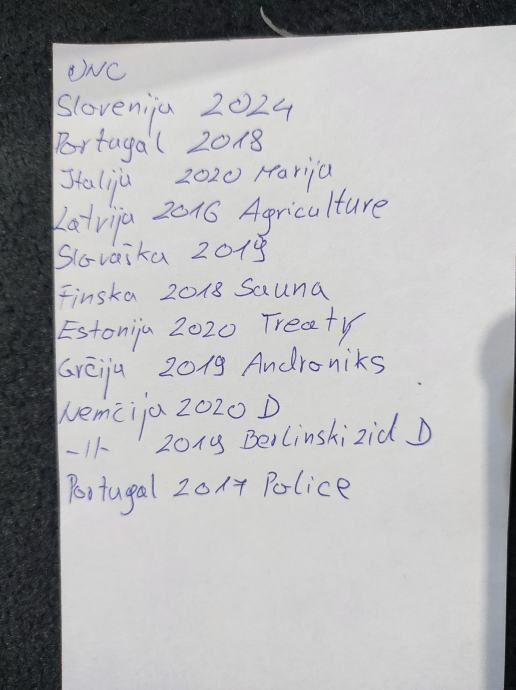 UNC
Slovenija 2024
Portugal 2018
Italija 2020 Marija
Latvija 2016 Agriculture
Slovaška 2019
Finska 2018 Sauna
Estonija 2020 Treaty
Grčija 2019 Androniks
Nemčija 2020 D
-11- 2019 Berlinski zid D
Portugal 2017 Police